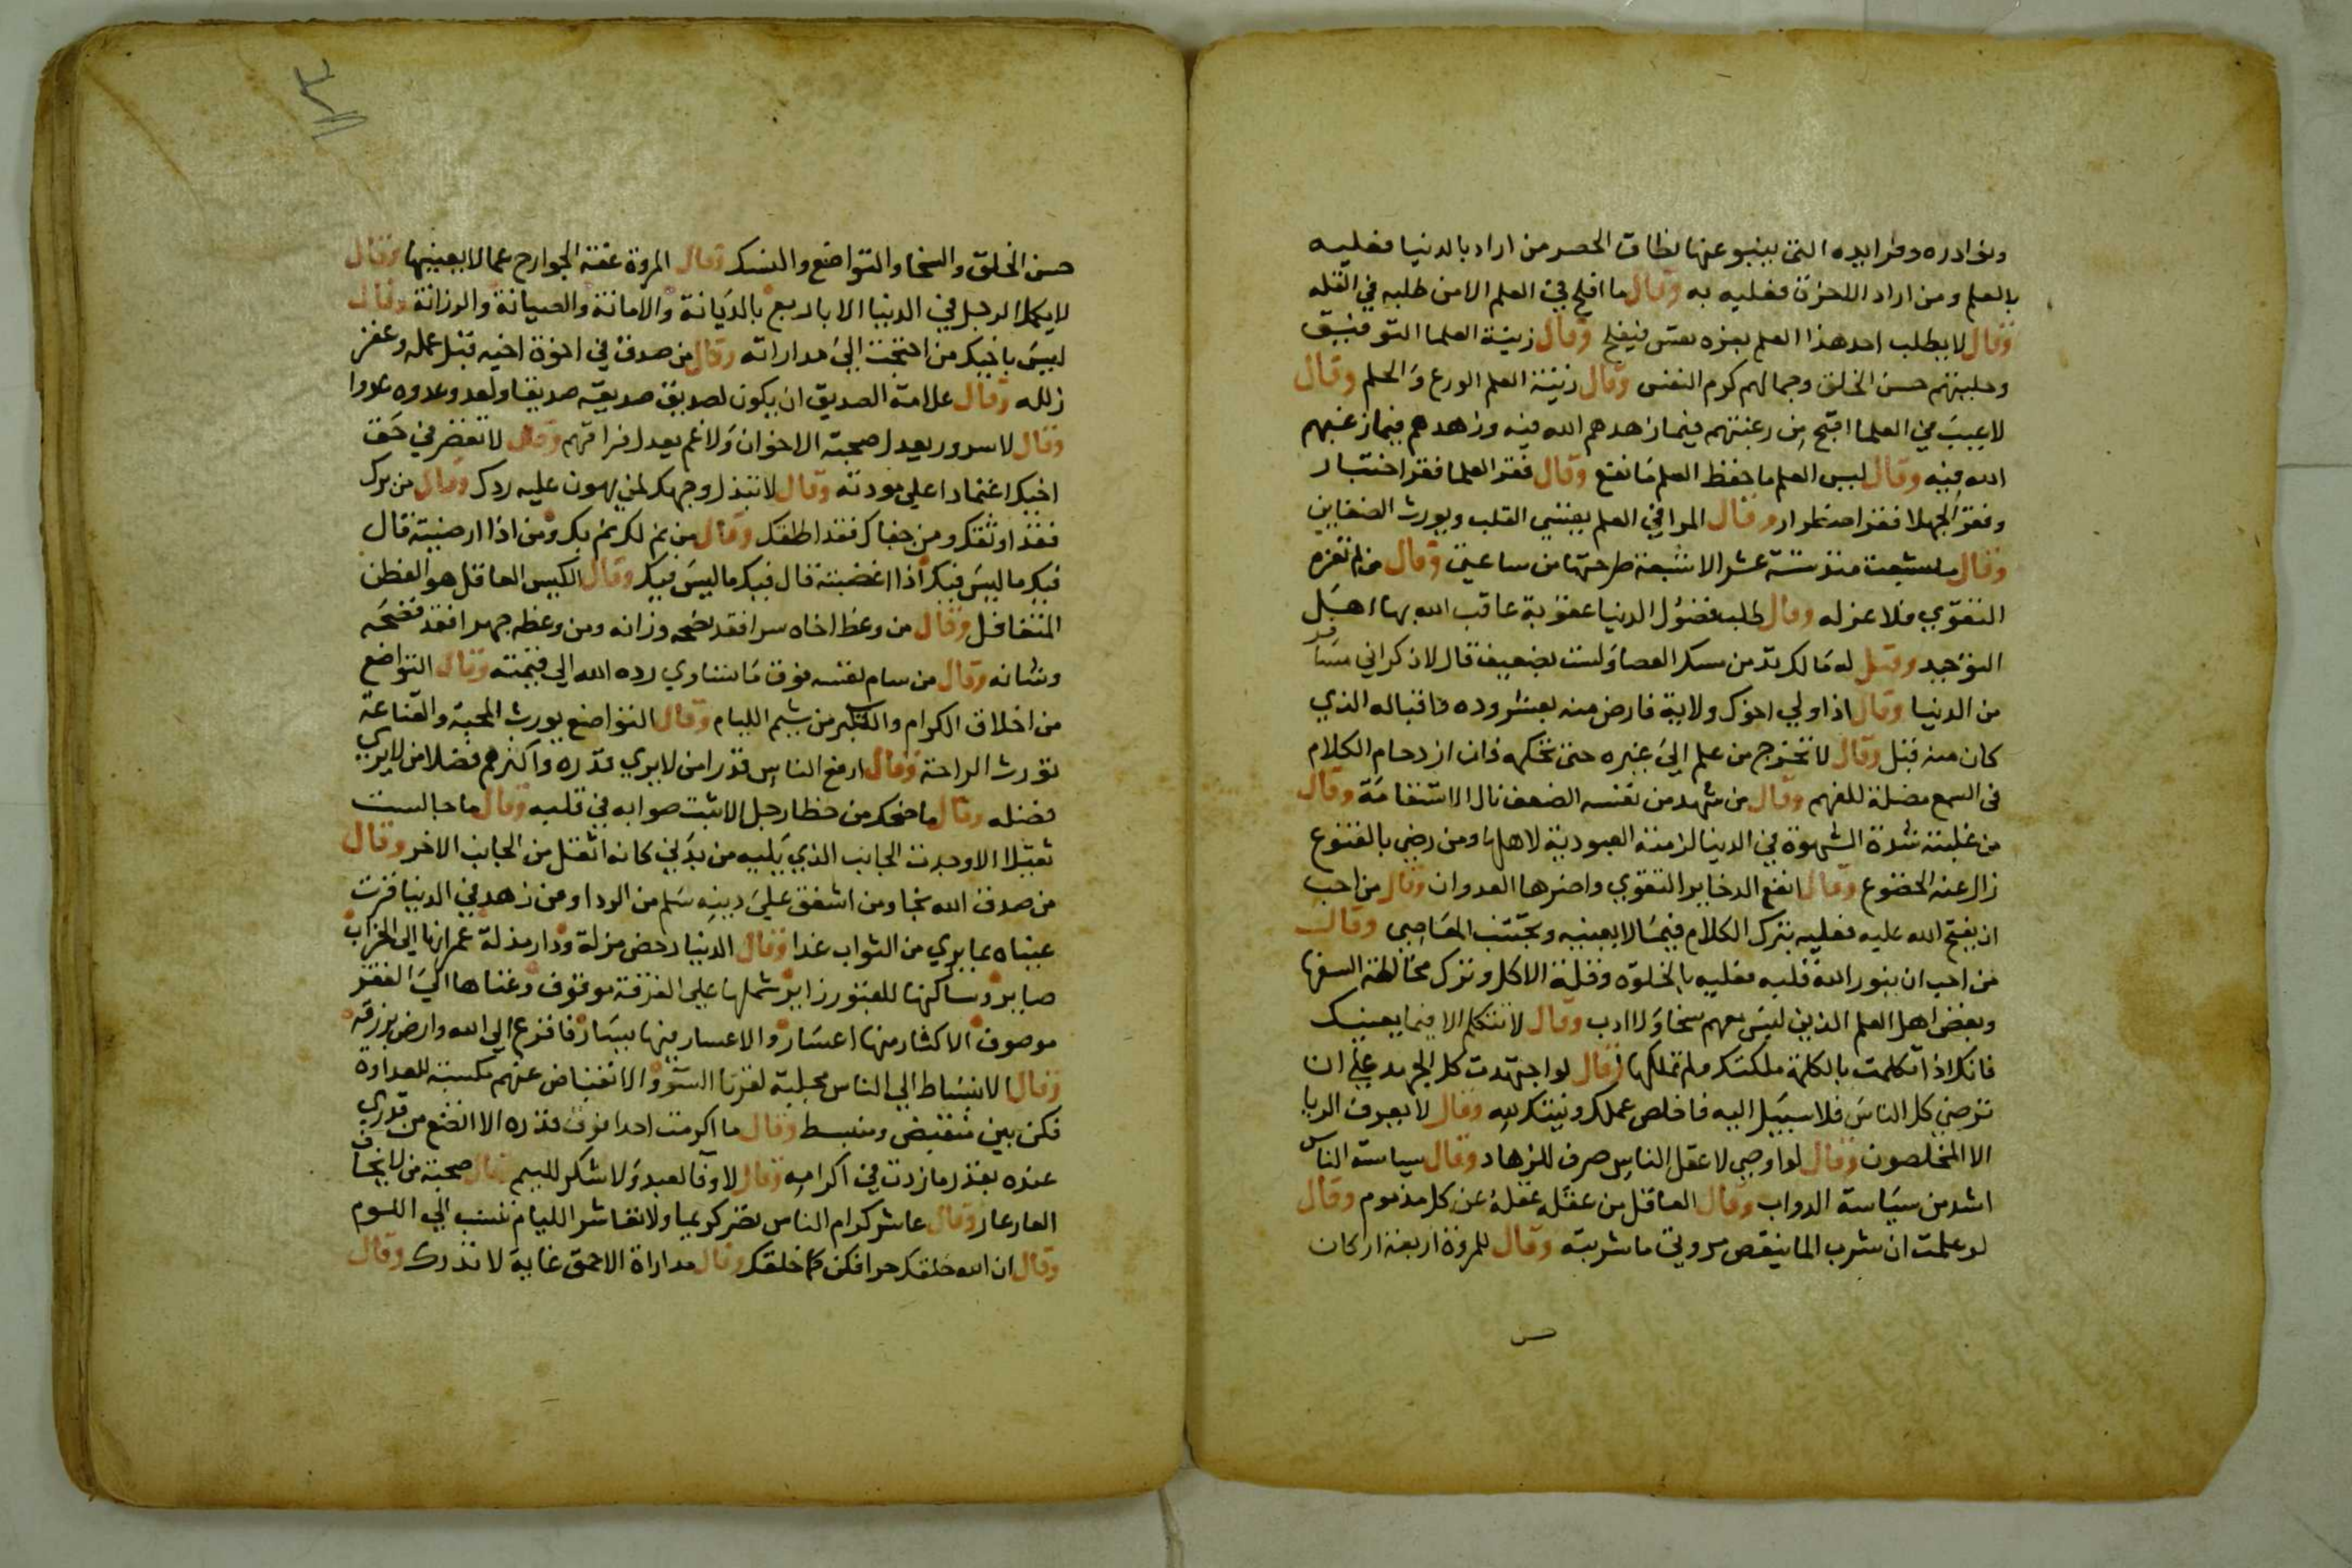 ونوادره وفرايده التي ينبو عنها نطاق الحصر من اراد بالدنيا فعليه
بالعلم ومن اراد الاخرة فعليه به وقال ما افلح في العلم الا من طلبه في القله
وقال لا يطلب احد هذا العلم بعزه نفس فيفلح وقال زينة العلما التوفيق
وحليتهم حسن الخلق وجمالهم كرم النفس وقال زينة العلم الورع والحلم وقال
لا عيب في العلما اقبح من رغبتهم فيما زهدهم الله فيه وزهدهم فيما رغبهم
الله فيه وقال ليس العلم ما حفظ العلم ما نفع وقال فقر العلما فقر اختيار
وفقر الجهلا فقر اضطرار وقال المرا في العلم يقسي القلب ويورث الضغاين
وقال ما شبعت منذ ستة عشر الا شبعة طرحتها من ساعتي وقال من لم تعزه
التقوي فلا عز له وقال طلب فضول الدنيا عقوبة عاقب الله بها اهل
التوحيد وقيل له ما لك تدمن مسك العصا ولست بضعيف قال لاذكر اني مسافر
من الدنيا وقال اذا ولي اخوك ولاية فارض منه بعشر وده في اقباله الذي
كان منه قبل وقال لا تخرج من علم الي غيره حتي تحكمه فان ازدحام الكلام
في السمع مضلة للفهم وقال من شهد من نفسه الضعف نال الاستقامة وقال
من غلبته شدة الشهوة في الدنيا لزمته العبودية لاهلها ومن رضي بالقنوع
زال عنه الخضوع وقال انفع الدخاير التقوي واضرها العدوان وقال من احب
ان يفتح الله عليه فعليه بترك الكلام فيما لا يعنيه وتجنب المعاصي وقال
من احب ان ينور الله قلبه فعليه بالخلوه وقلة الاكل وترك مخالطة السفها
وبعض اهل العلم الذين ليس معهم سخا ولا ادب وقال لا تتكلم الا فيما يعنيك
فانك اذا تكلمت بالكلمة ملكتك ولم تملكها وقال لو اجتهدت كل الجهد علي ان
ترضي كل الناس فلا سبيل اليه فاخلص عملك ونيتك لله وقال لا يعرف الريا
الا المخلصون وقال لو اوصي لاعقل الناس صرف للزهاد وقال سياسة الناس
اشد من سياسة الدواب وقال العاقل من عقله عقله عن كل مذموم وقال
لو علمت ان شرب الما ينقص مروتي ما شربته وقال للمروة اربعة اركان
حسن
حسن الخلق والسخا والتواضع والنسك وقال المروة عفة الجوارح عما لا يعنيها وقال
لا يكمل الرجل في الدنيا الا باربع بالديانة والامانة والصيانة والرزانة وقال
ليس باخيك من احتجت الي مداراته وقال من صدق في اخوة اخيه قبل علله وغفر
زلله وقال علامة الصديق ان يكون لصديق صديقه صديقا ولعدو عدوه عدوا
وقال لا سرور يعدل صحبة الاخوان ولا غم يعدل فراقهم وقال لا تقصر في حق
اخيك اعتمادا علي مودته وقال لا تبذل وجهك لمن يهون عليه ردك وقال من برك
فقد اوثقك ومن جفاك فقد اطلقك وقال من نم لك نم بك ومن اذا ارضيته قال
فيك ما ليس فيك اذا اغضبته قال فيك ما ليس فيك وقال الكيس العاقل هو الفطن
المتغافل وقال من وعظ اخاه سرا فقد نصحه وزانه ومن وعظه جهرا فقد فضحه
وشانه وقال من سام نفسه فوق ما تساوي رده الله الي قيمته وقال التواضع
من اخلاق الكرام والتكبر من شيم الليام وقال التواضع يورث المحبة والقناعة
تورث الراحة وقال ارفع الناس قدرا من لا يري قدره واكثرهم فضلا من لا يري
فضله وقال ما ضحك من خطا رجل الا ثبت صوابه في قلبه وقال ما جالست
ثقيلا الا وجدت الجانب الذي يليه من بدني كانه اثقل من الجانب الاخر وقال
من صدق الله نجا ومن اشفق علي دينه سلم من الردا ومن زهد في الدنيا قرت
عيناه بما يري من الثواب غدا وقال الدنيا دحض مزلة ودار مذلة عمرانها الي الخراب
صاير وساكنها للقبور زاير شملها علي الفرقة موقوف وغناها الي الفقر
موصوف الاكثار منها اعسار والاعسار فيها يسار فافزع الي الله وارض برزقه
وقال الانبساط الي الناس مجلبة لقرنا السوء والانقباض عنهم مكسبة للعداوة
فكن بين منقبض ومنبسط وقال ما اكرمت احدا فوق قدره الا اتضع من قدري
عنده بقدر ما زدت في اكرامه وقال لا وفا لعبد ولا شكر للييم وقال صحبة من لا يخاف
العار عار وقال عاشر كرام الناس تصر كريما ولا تعاشر الليام تنسب الي اللوم
وقال ان الله خلقك حرا فكن كما خلقك وقال مداراة الاحمق غاية لا تدرك وقال